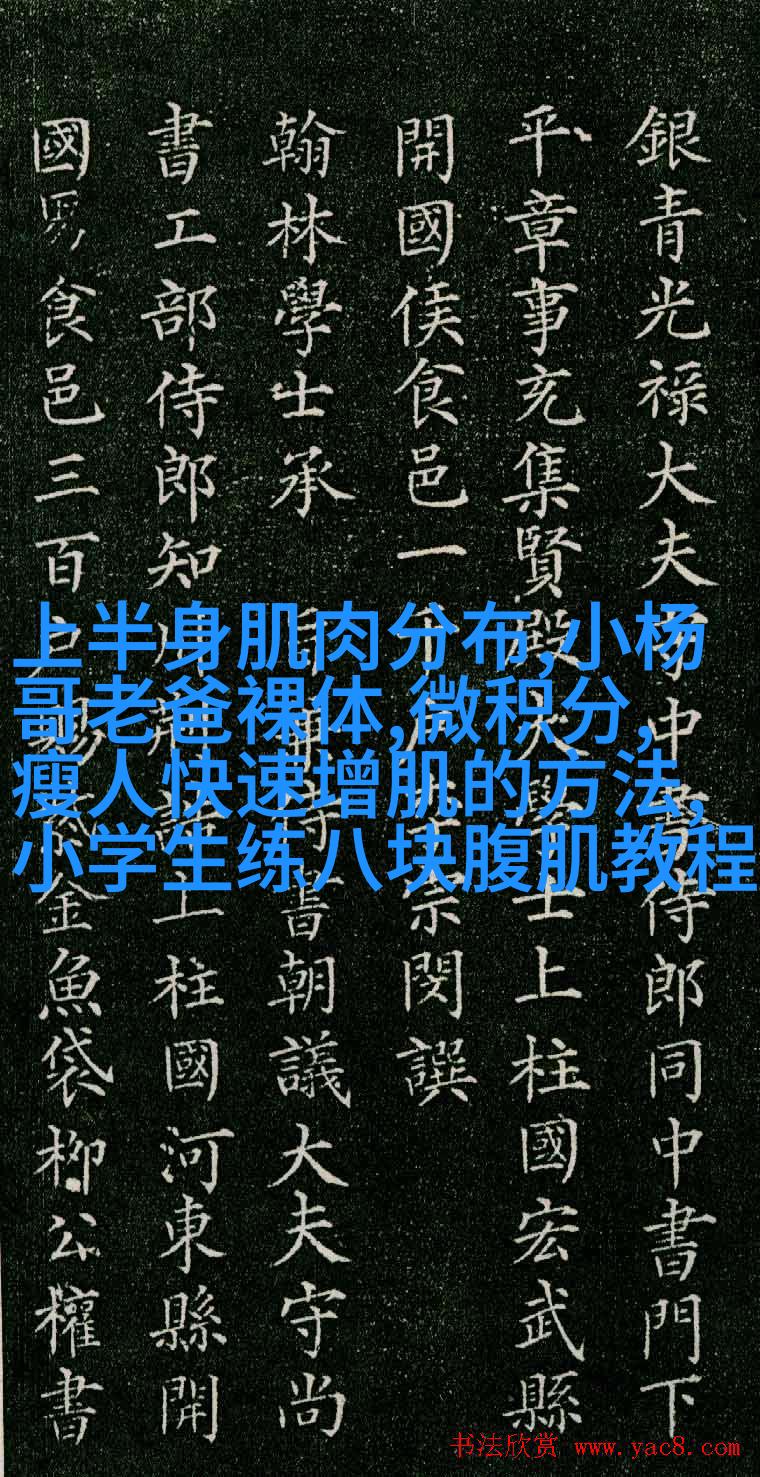 銀青光禄大夫守中書侍郎同中書門下
平章事充集賢殿大學士上柱國宏武縣
開國侯食邑一千户宗閔撰
翰林學士承侍書朝議大夫守尚
書工部侍郎知制誥上柱國河東縣開
國男食邑三百户賜金魚袋柳公權書
上半身肌肉分布,小杨
哥老爸裸体,微积分,
瘦人快速增肌的方法,
小学生练八块腹肌教程
书法欣赏 www.yac8.com